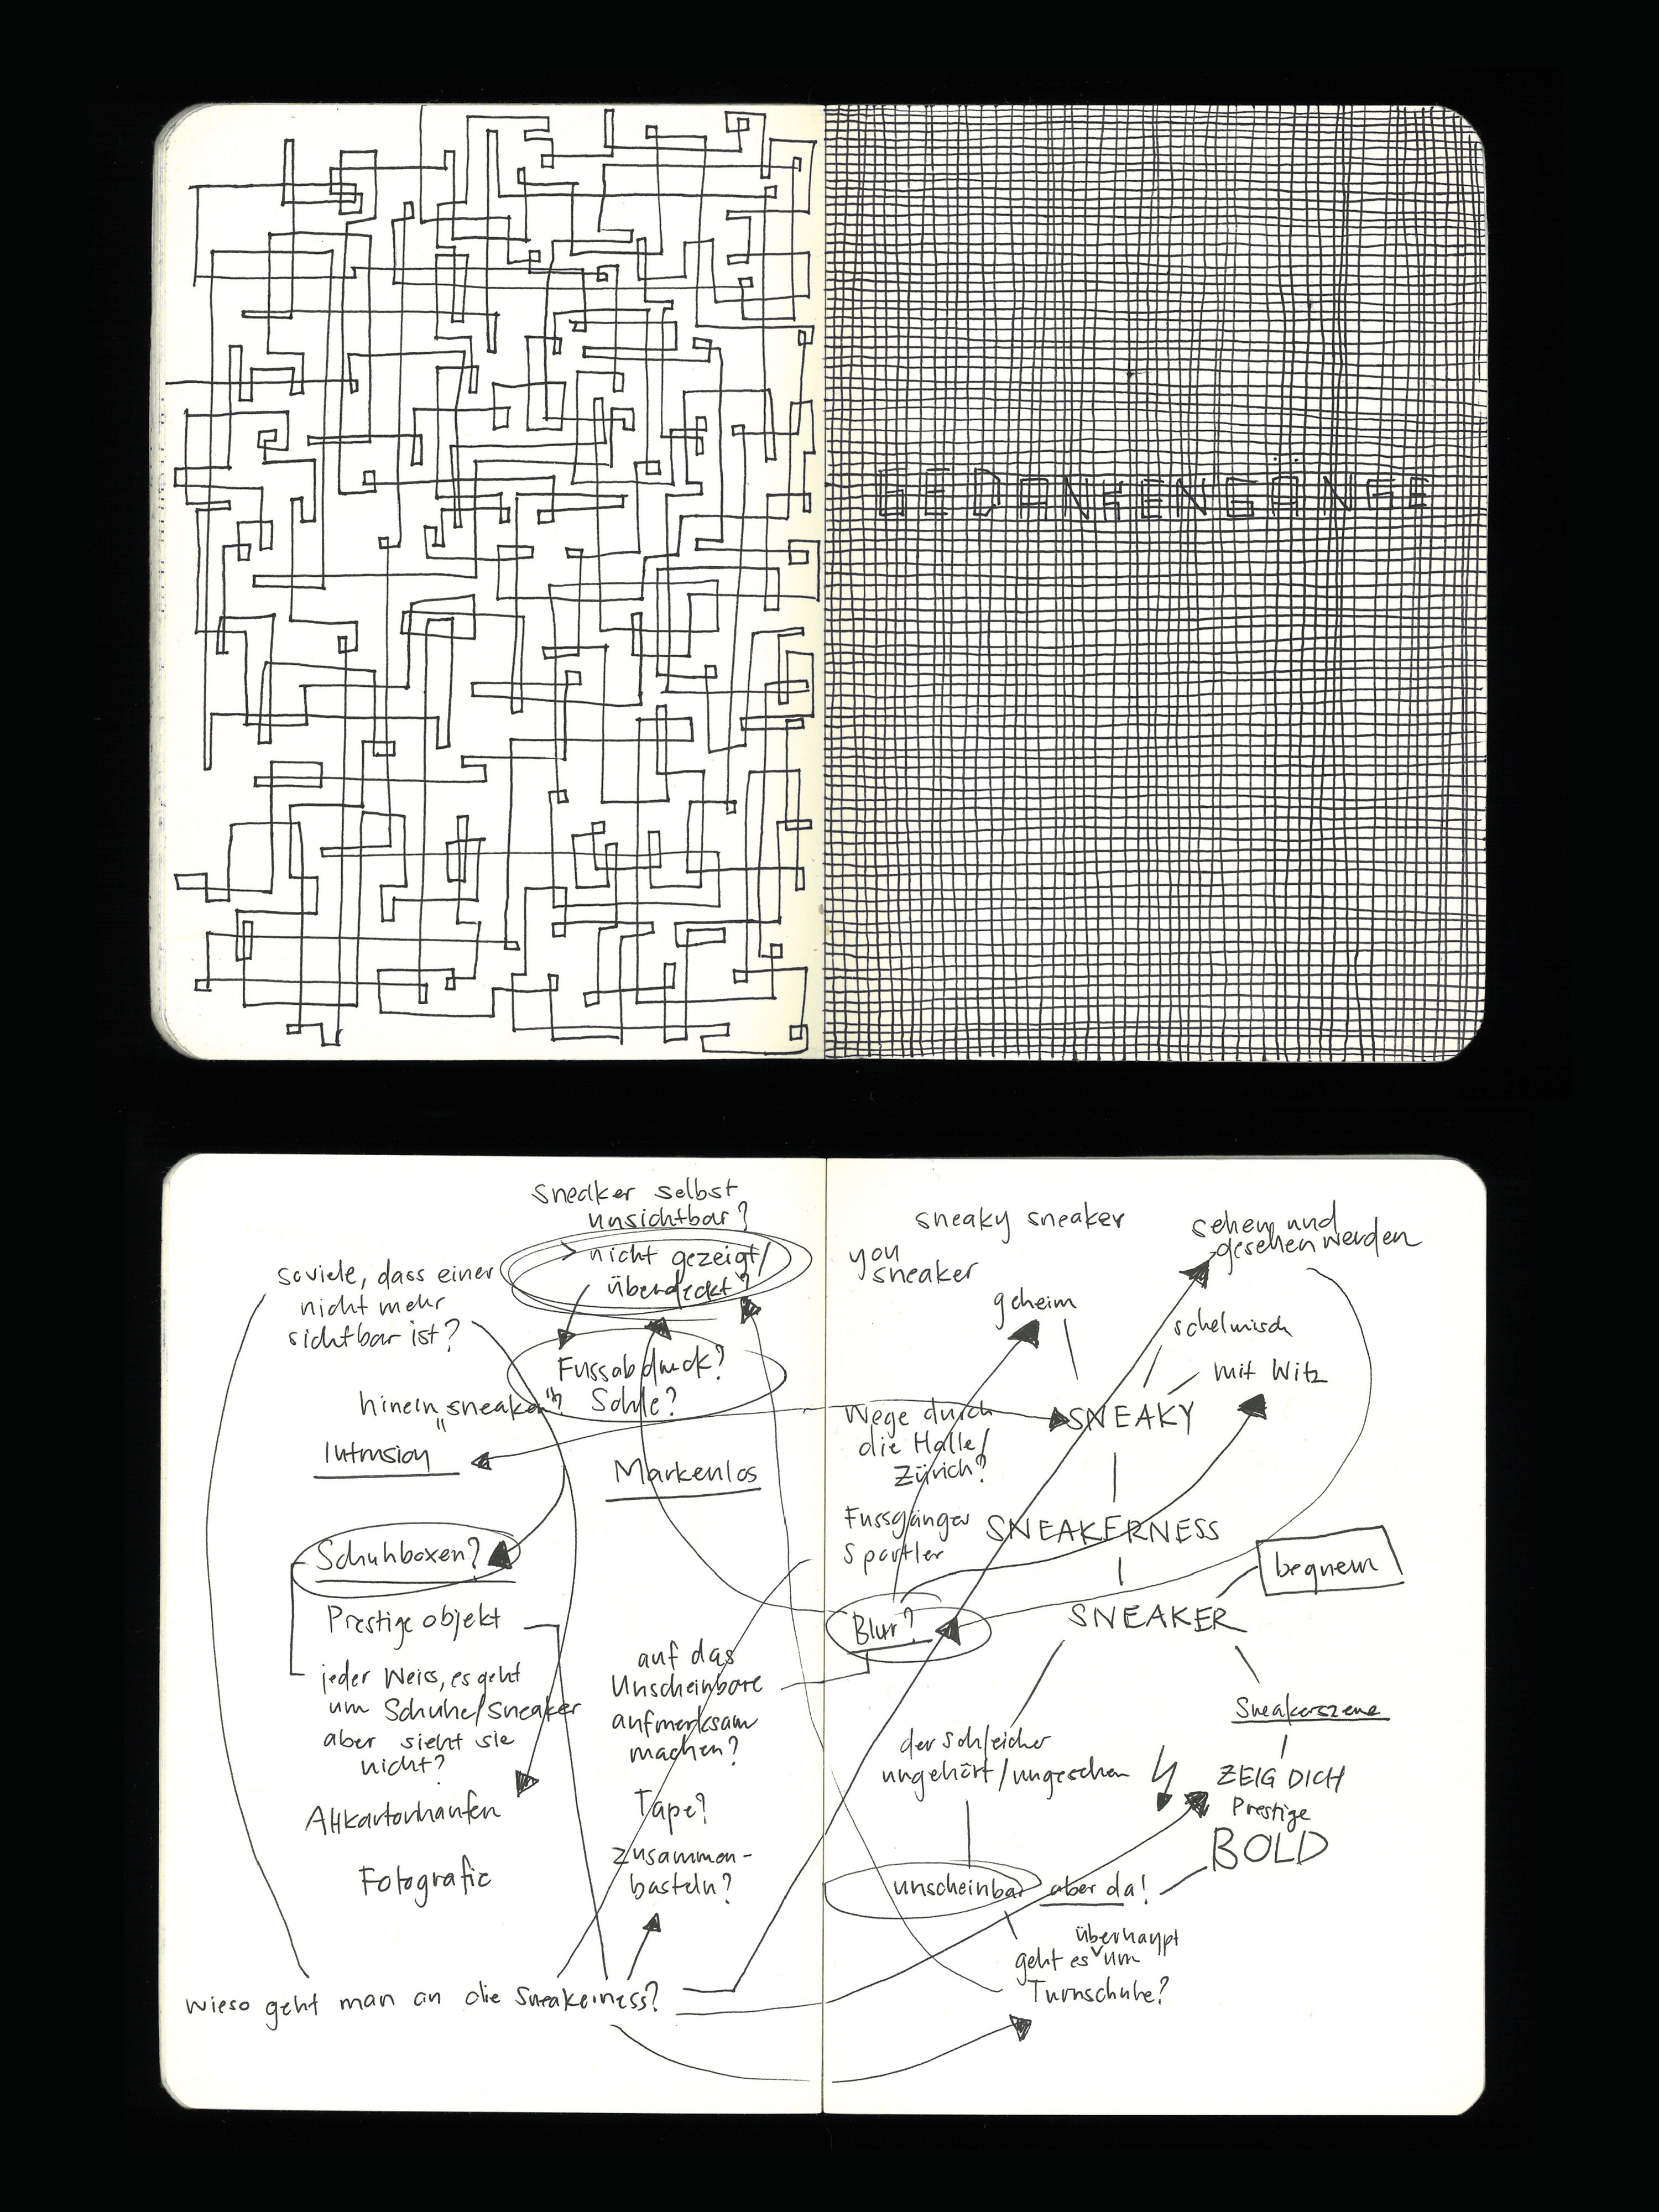 GEDANKENGÄNGE
sneaker selbst
unsichtbar?
> nicht gezeigt/
überdeckt?
soviele, dass einer
nicht mehr
sichtbar ist?
Fussabdruck?
Sohle?
hinein "sneaken"?
Intrusion
Markenlos
Schuhboxen?
Prestige objekt
jeder Weiss, es geht
um Schuhe/Sneaker
aber sieht sie
nicht?
Altkartonhaufen
Fotografie
auf das
Unscheinbare
aufmerksam
machen?
Tape?
Zusammen-
basteln?
wieso geht man an die Sneakerness?
sneaky sneaker
you
sneaker
sehen und
gesehen werden
geheim
schelmisch
mit Witz
SNEAKY
Wege durch
die Halle/
Zürich?
Fussgänger
Sportler
SNEAKERNESS
bequem
Blur?
SNEAKER
Sneakerszene
der schleicher
ungehört/ungesehen
ZEIG DICH
Prestige
BOLD
unscheinbar aber da!
überhaupt
geht es um
Turnschuhe?